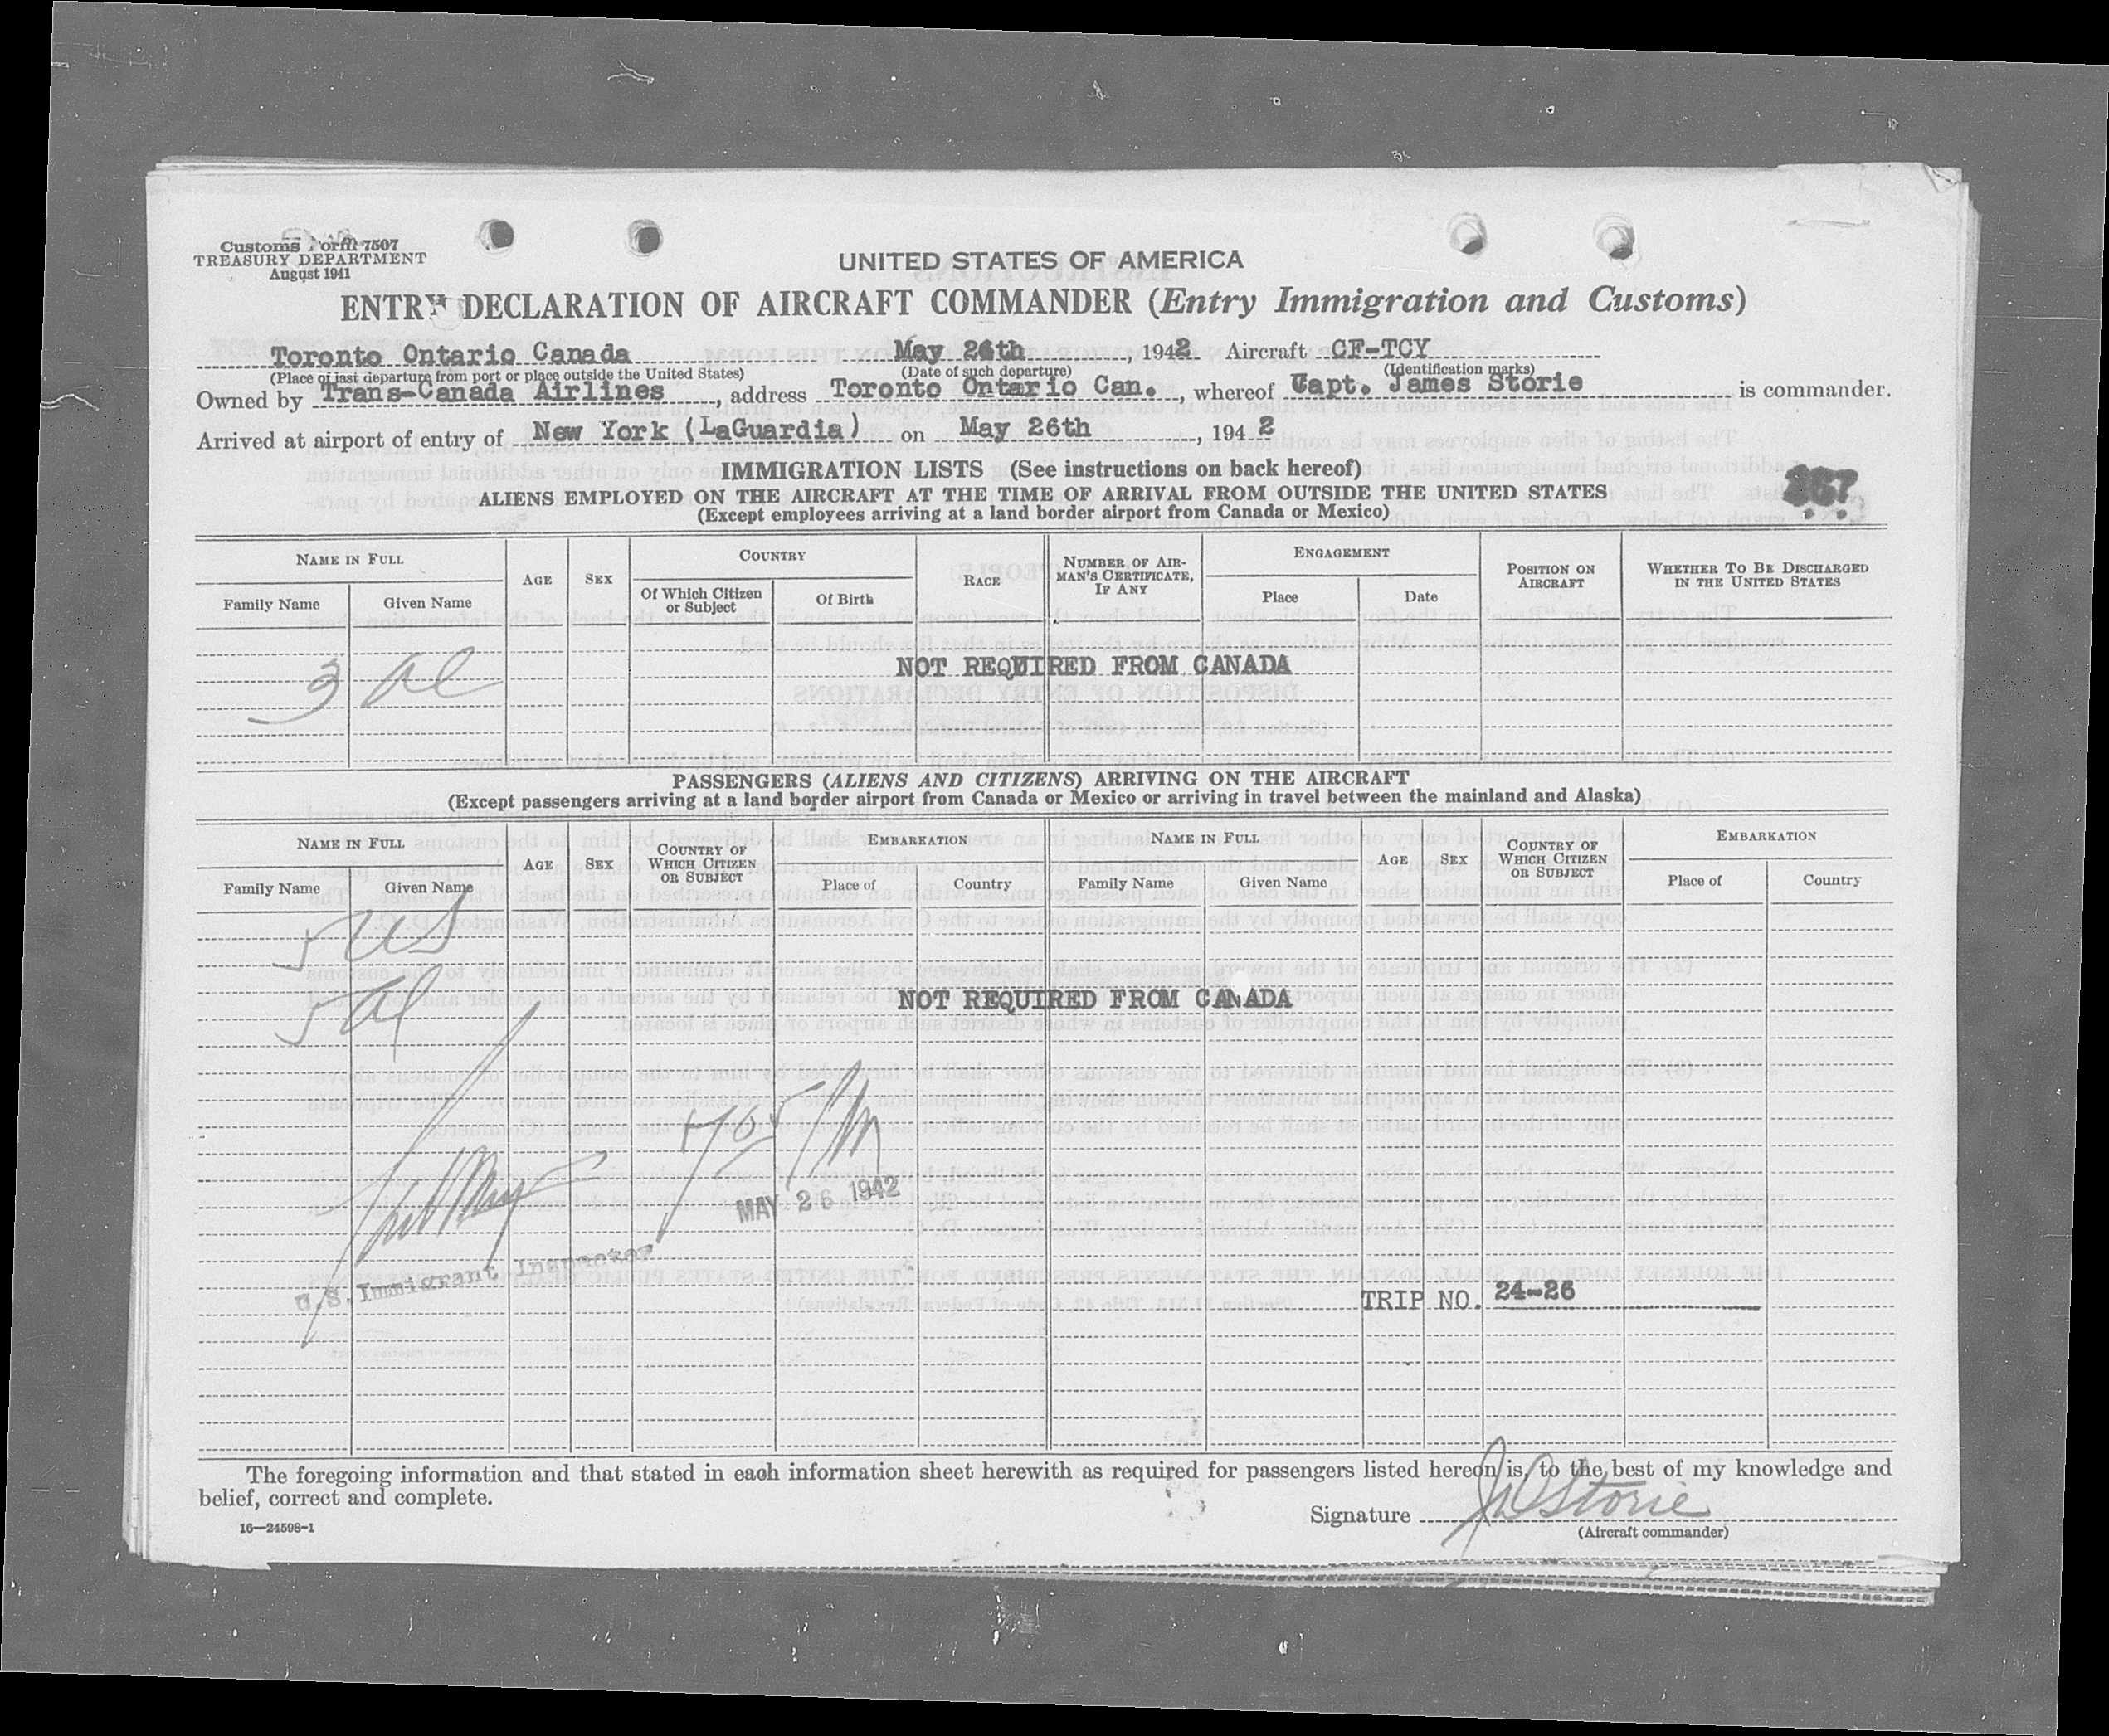 Customs Form 7507
TREASURY DEPARTMENT
August 1941
UNITED STATES OF AMERICA
ENTRY DECLARATION OF AIRCRAFT COMMANDER (Entry Immigration and Customs)
Toronto Ontario Canada May 26th, 1942 Aircraft CF-TCY
(Place of last departure from port or place outside the United States) (Date of such departure) (Identification marks)
Owned by Trans-Canada Airlines, address Toronto Ontario Can., whereof Capt. James Storie is commander.
Arrived at airport of entry of New York (LaGuardia) on May 26th, 1942
IMMIGRATION LISTS (See instructions on back hereof)
267
ALIENS EMPLOYED ON THE AIRCRAFT AT THE TIME OF ARRIVAL FROM OUTSIDE THE UNITED STATES
(Except employees arriving at a land border airport from Canada or Mexico)
NAME IN FULL AGE SEX COUNTRY RACE NUMBER OF AIRMAN'S CERTIFICATE, IF ANY ENGAGEMENT POSITION ON AIRCRAFT WHETHER TO BE DISCHARGED IN THE UNITED STATES
Family Name Given Name Of Which Citizen or Subject Of Birth Place Date
3 al NOT REQUIRED FROM CANADA
PASSENGERS (ALIENS AND CITIZENS) ARRIVING ON THE AIRCRAFT
(Except passengers arriving at a land border airport from Canada or Mexico or arriving in travel between the mainland and Alaska)
NAME IN FULL AGE SEX COUNTRY OF WHICH CITIZEN OR SUBJECT EMBARKATION NAME IN FULL AGE SEX COUNTRY OF WHICH CITIZEN OR SUBJECT EMBARKATION
Family Name Given Name Place of Country Family Name Given Name Place of Country
5 US
5 al NOT REQUIRED FROM CANADA
MAY 26 1942
U.S. Immigrant Inspector
TRIP NO. 24-26
The foregoing information and that stated in each information sheet herewith as required for passengers listed hereon is, to the best of my knowledge and
belief, correct and complete.
Signature Storie
16—24598-1 (Aircraft commander)